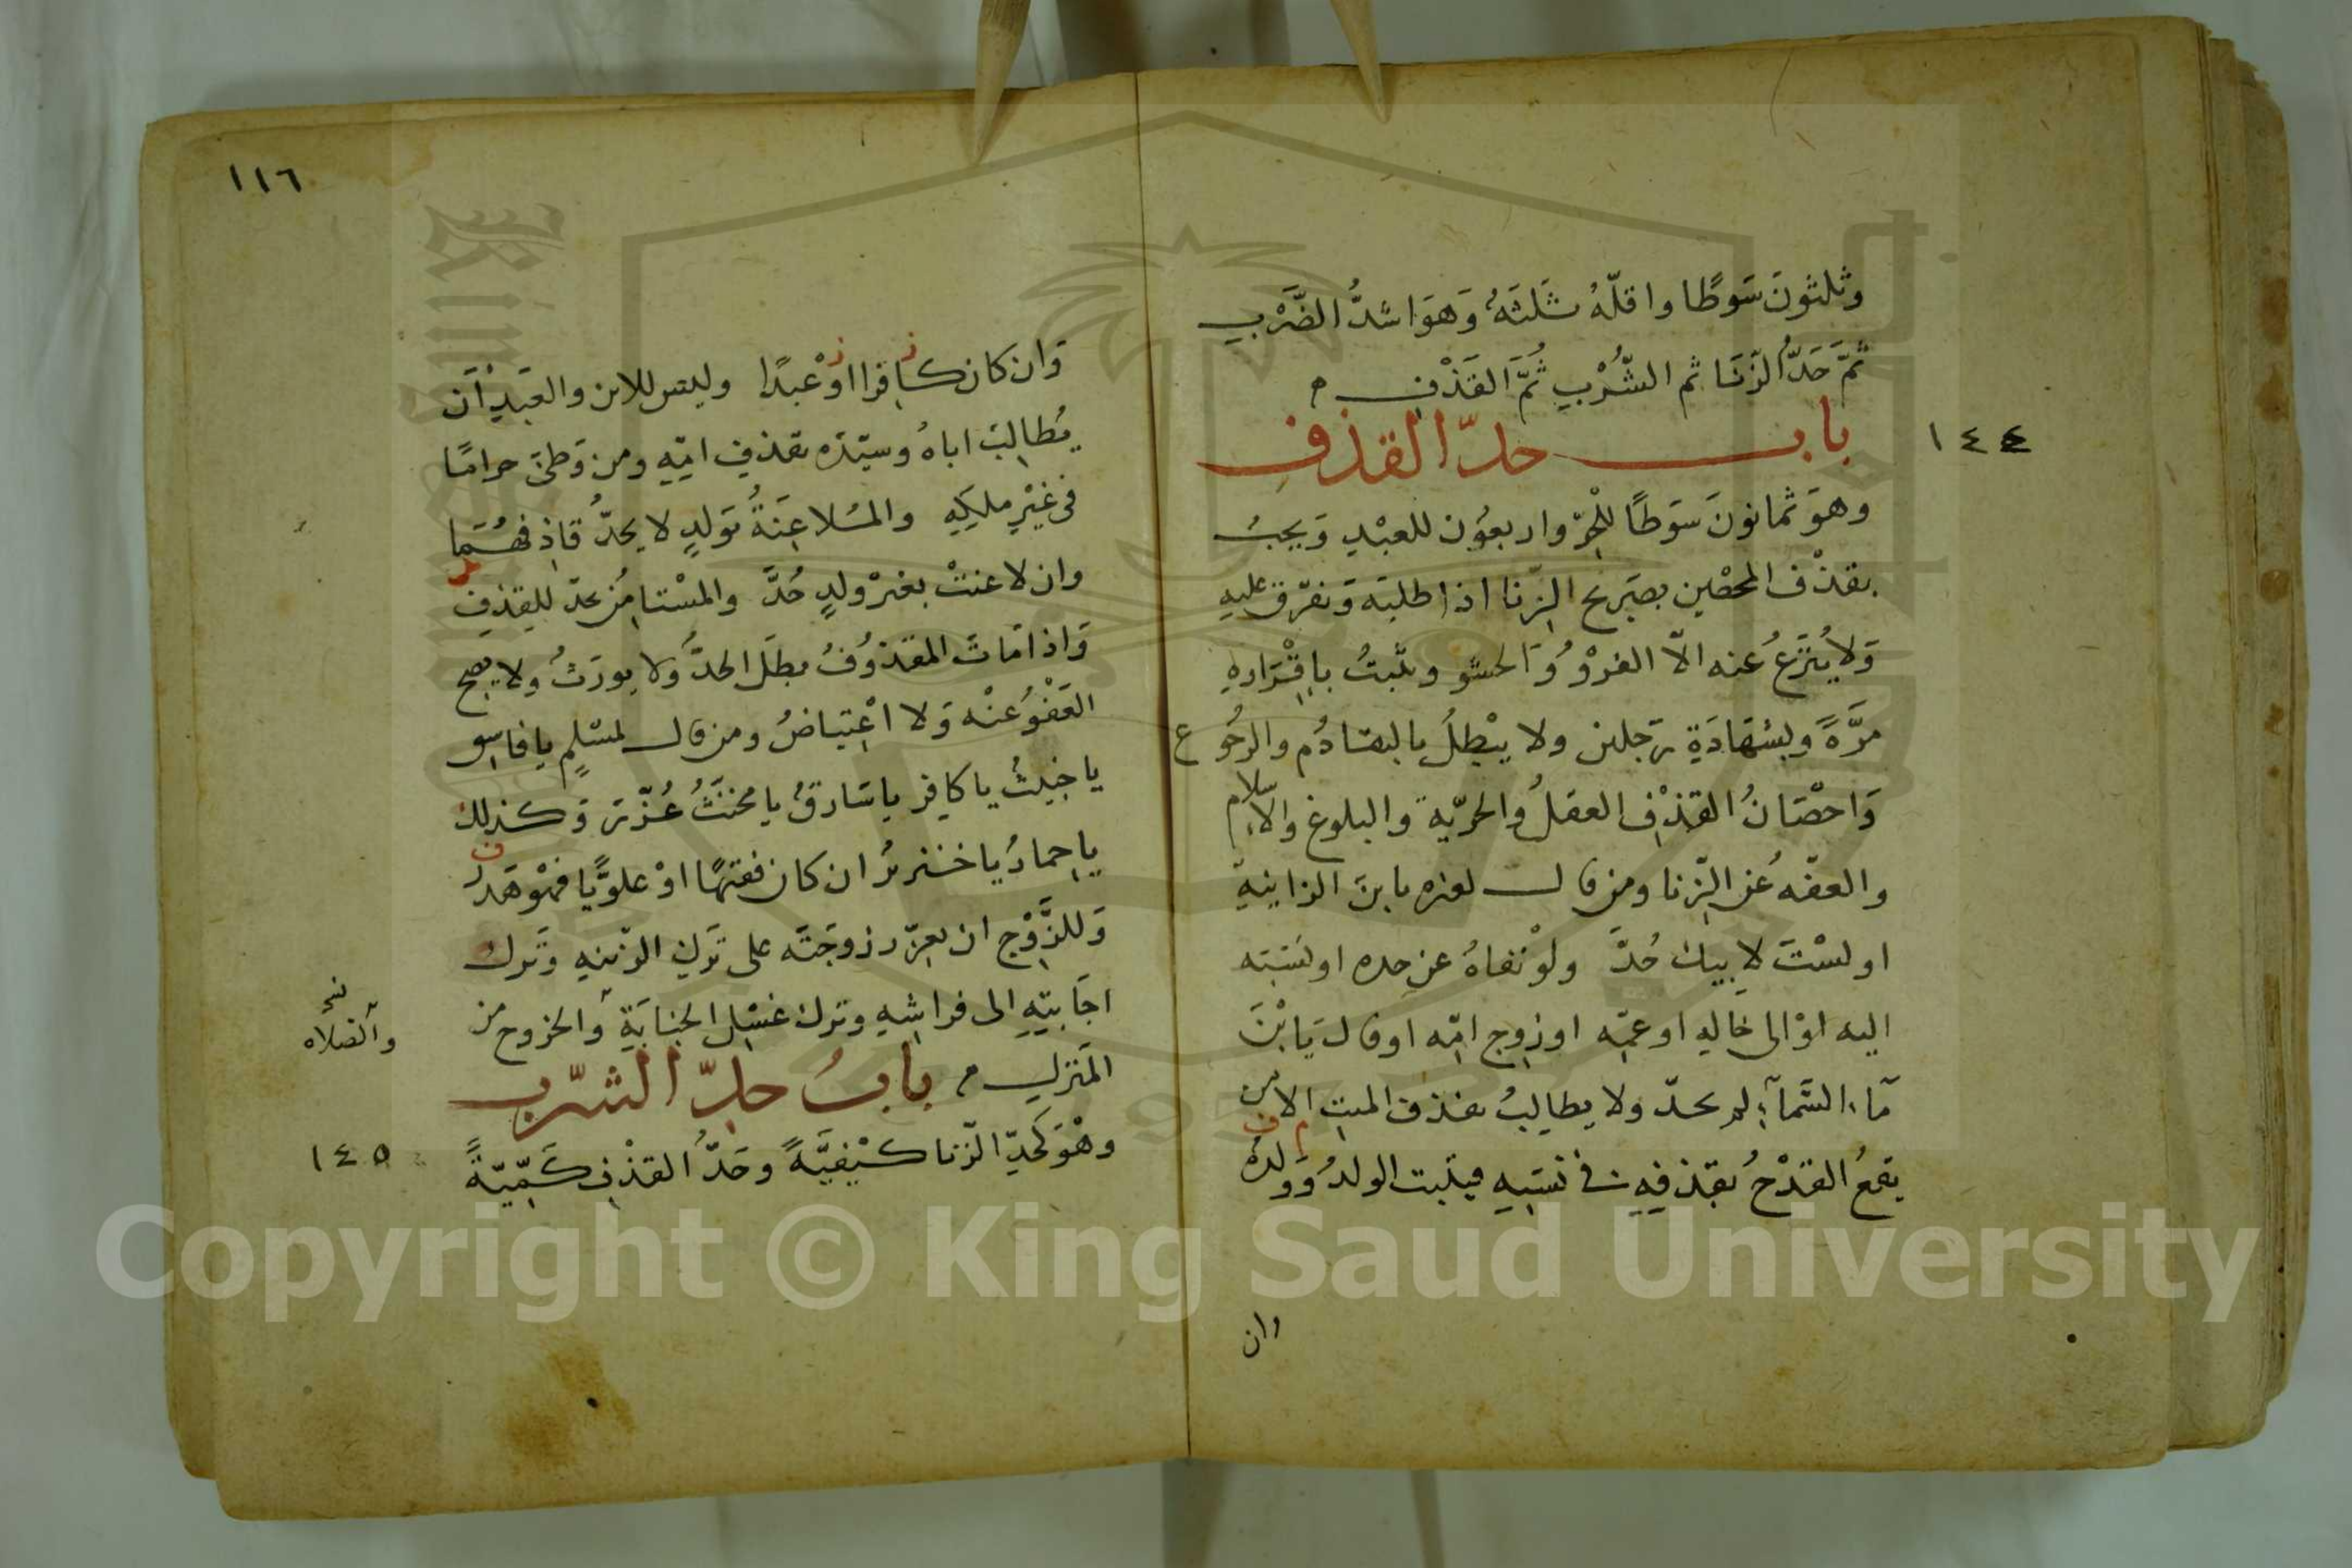 وثلثون سَوطًا واقلّهُ ثَلثَةٌ وَهوَ اشدُّ الضَّرْبِ
ثمَّ حَدُّ الزّنَا ثم الشُّرْبِ ثُمَّ القَذْفِ
باب حدّ القذف
١٤٤
وهوَ ثمانونَ سَوَطًا للْحرّ واربعوُن للعبْدِ وَيجبُ
بقذْف المحصْين بصَريح الزّنا اذا طلبَه وَيفرّق عليه
وَلا يُنزَعُ عنه الّا الفروُ وَالحشو ويثبتُ باِقْرَارِهِ
مرَّةً وبشهَادَةِ رَجلين ولا يبْطلُ بالتقادُم والرجُوع
وَاحْصَانُ القذْفِ العقلُ والحريّة والبلوغ والاسلام
والعفّة عُن الزّنا ومن قال لغيره يابنَ الزانيةِ
او لسْتَ لاِبيك حُدَّ ولوْ نفاهُ عن جده او نسَبَه
اليه اوْ الى خاَلهِ او عمّه او زوج امّه او قال يَا بْنَ
مآء السَّمآءِ لم يحدّ ولا يطالِبُ بقذف الميت الا من
يقعُ القدْحُ بقذفِهِ في نسَبِهِ فيثبت الولدُ وَولدُه
وان
١١٦
وَان كان كافِرا اوْ عْبدًا وليس للابن والعَبدِ اَن
يُطالِبَ اباهُ وسيّدَه بقذفِ امّهِ ومن وَطئَ حرامًا
فى غيْرِ ملكِهِ والمُلاعِنَةُ بوَلدٍ لا يحدُّ قاذِفهُمَا
وان لاعنتْ بغيْر ولدٍ حُدَّ والمسْتامِنُ يحدّ للِقذفِ
وَاذا مَاتَ المقذوُفُ بطَل الحدُّ وَلا يورَثُ ولا يصحّ
العَفْوُ عنْه وَلا اعْتِياضُ ومن قال لمسْلِمٍ يا فاسِق
يا خبيثُ يا كافِر يا سَارقُ يا مخنَّثُ عُزّرَ وَكذلك
يا حِمارُ يا خنزيرُ ان كان فقيهًا اوْ علَويًّا فهْوَ هَدر
وَللزَّوْجِ ان يعزّر زوجَتَه على تَركِ الزّينهِ وَتَركِ
اجَابتِهِ الى فراشِهِ وترك غسْلِ الجنابَةِ وَالخروج من
نسخه
والصَلاه
المَنزِلِ بابُ حدِّ الشّرب
١٤٥
وهْوَ كَحدِّ الزّنا كيْفيَّةً وحَدُّ القذْفِ كَمّيّةً
Copyright © King Saud University